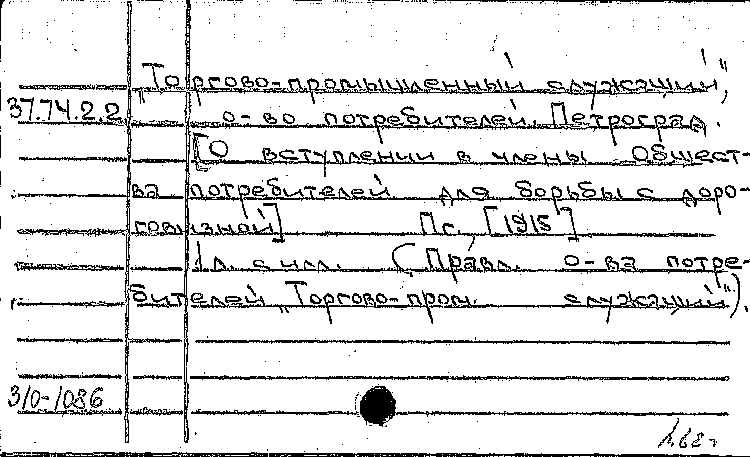 „Торгово-промышленный служащий",
37.74.2.2 о-во потребителей. Петроград.
[О вступлении в члены Общест-
ва потребителей для борьбы с доро-
говизной] Пг., [1915]
1 л. с илл. (Правл. о-ва потре-
бителей „Торгово-пром. служащий").
3/0-1086